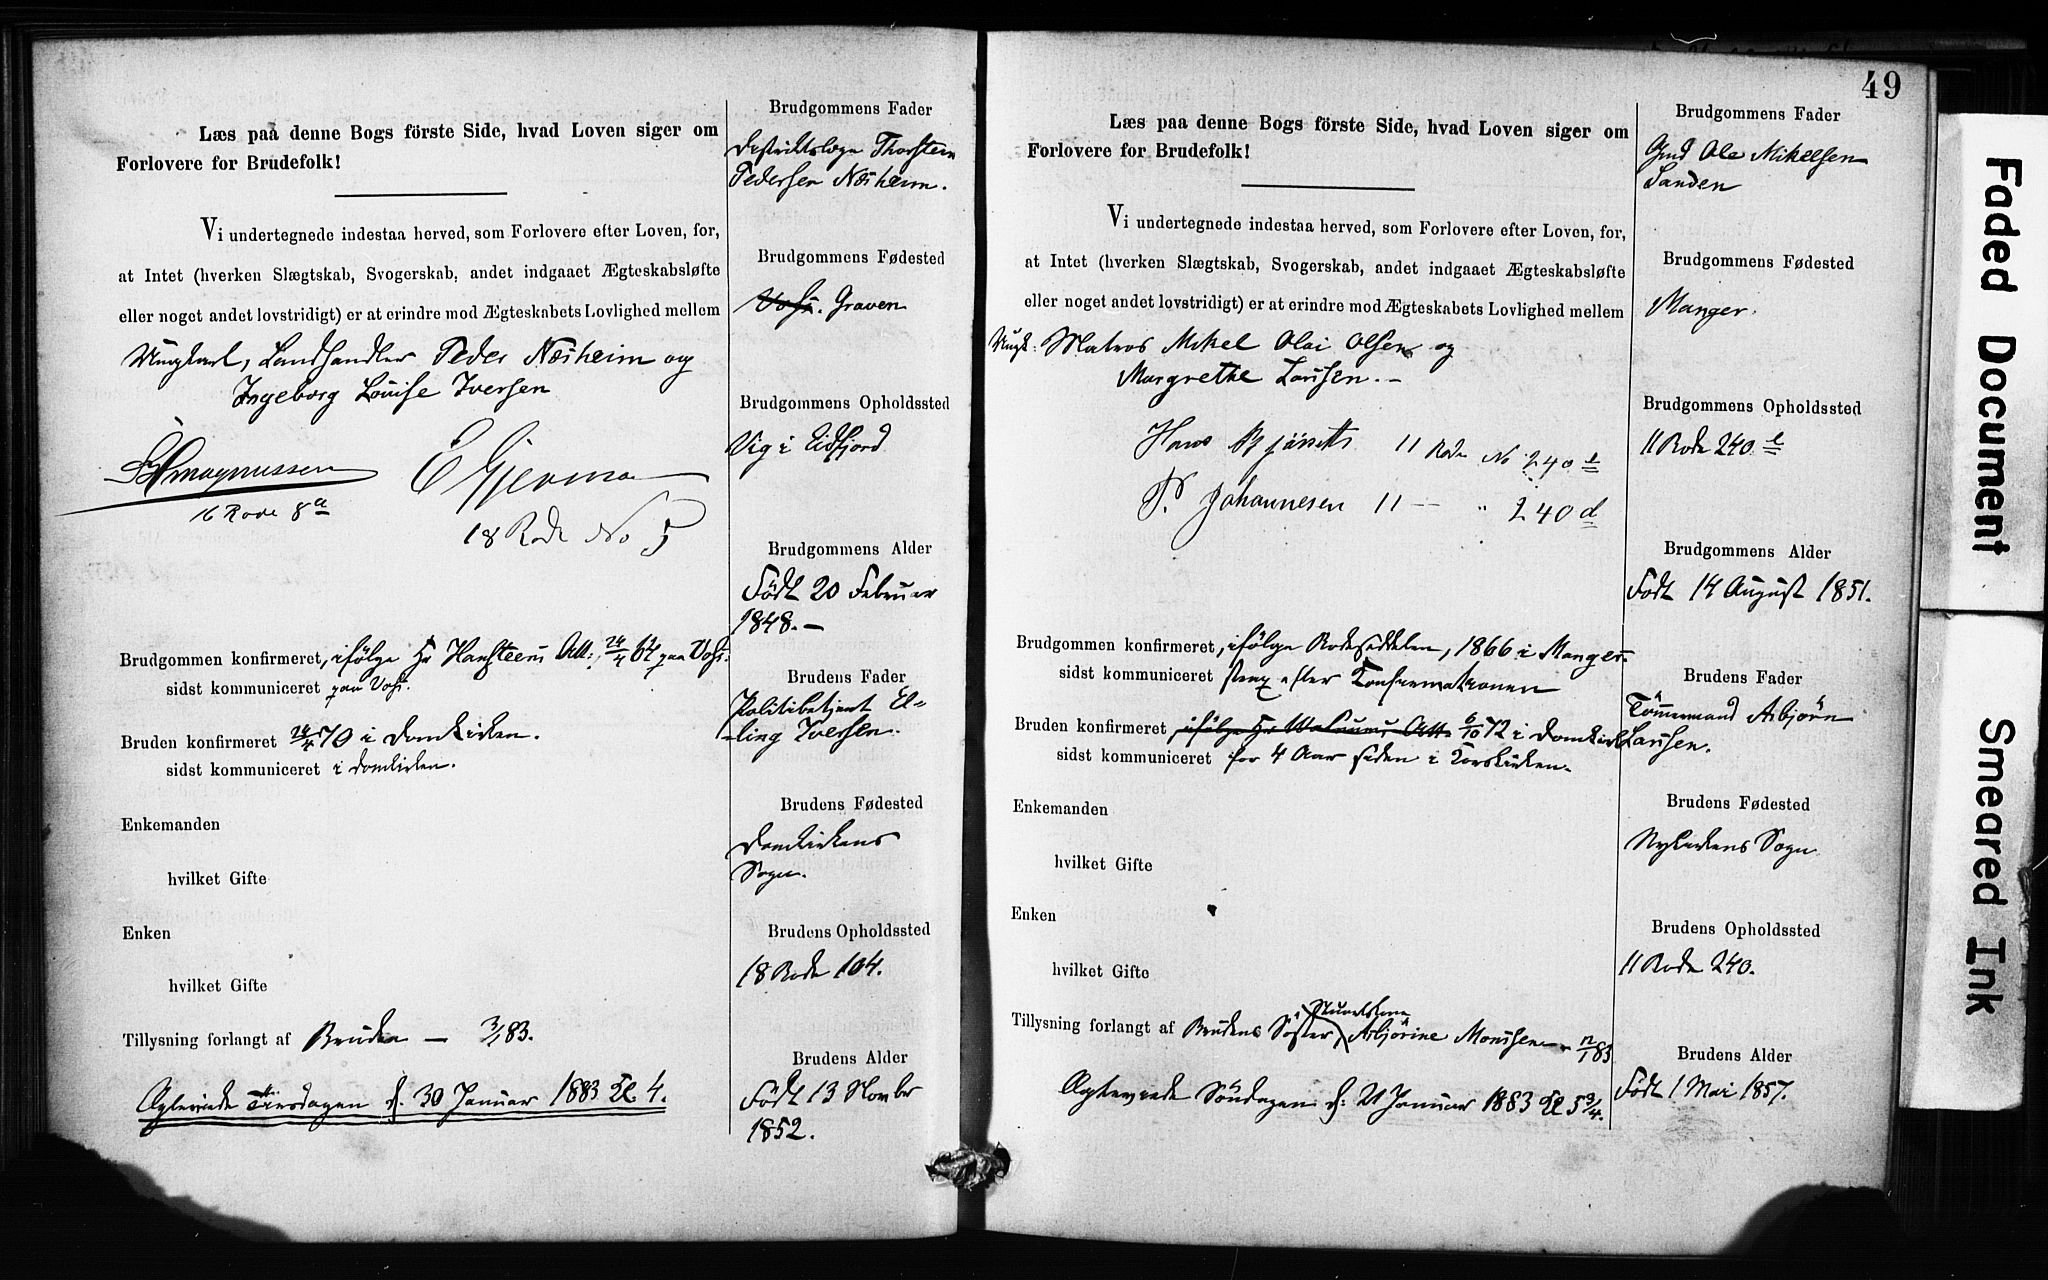 Læs paa denne Bogs förste Side, hvad Loven siger om
Forlovere for Brudefolk!
Vi undertegnede indestaa herved, som Forlovere efter Loven, for,
at Intet (hverken Slægtskab, Svogerskab, andet indgaaet Ægteskabsløfte
eller noget andet lovstridigt) er at erindre mod Ægteskabets Lovlighed mellem
Ungkarl, Landhandler Peder Næsheim og
Ingeborg Louise Iversen
Magnussen
E Gjerma
16 Rode 8a
18 Rode No 5
Brudgommen konfirmeret, ifölge Hr Hansteens Att: 24/4 64 paa Voss.
sidst kommuniceret paa Voss.
Bruden konfirmeret 24/4 70 i Domkirken.
sidst kommuniceret i Domkirken.
Enkemanden
hvilket Gifte
Enken
hvilket Gifte
Tillysning forlangt af Bruden — 3/1 83.
Ægteviede Tirsdagen d. 30 Januar 1883 Kl 4.
Brudgommens Fader
Distriktslæge Thorstein
Pedersen Næsheim.
Brudgommens Fødested
Voss. Graven
Brudgommens Opholdssted
Vig i Eidfjord
Brudgommens Alder
Födt 20 Februar
1848. —
Brudens Fader
Politibetjent El-
ling Iversen.
Brudens Fødested
Domkirkens
Sogn.
Brudens Opholdssted
18 Rode 104.
Brudens Alder
Födt 13 Novbr
1852.
49
Læs paa denne Bogs förste Side, hvad Loven siger om
Forlovere for Brudefolk!
Vi undertegnede indestaa herved, som Forlovere efter Loven, for,
at Intet (hverken Slægtskab, Svogerskab, andet indgaaet Ægteskabsløfte
eller noget andet lovstridigt) er at erindre mod Ægteskabets Lovlighed mellem
Ungk. Matros Mikel Olai Olsen og
Margrethe Larsen. —
Hans 11 Rode No 240 e
P. Johannesen 11 — " 240 d
Brudgommen konfirmeret, ifölge Rodeseddelen, 1866 i Manger.
sidst kommuniceret strax efter Konfirmationen
Bruden konfirmeret, ifölge Hr Walnums Att. 6/10 72 i Domkirk
sidst kommuniceret for 4 Aar siden i Korskirken.
Enkemanden
hvilket Gifte
Enken
hvilket Gifte
Tillysning forlangt af Brudens Söster, Stuertskone Asbjörine Monssen — 12/1 83
Ægteviede Söndagen d. 21 Januar 1883 Kl 5 3/4.
Brudgommens Fader
Gmd Ole Mikelsen
Sanden
Brudgommens Fødested
Manger.
Brudgommens Opholdssted
11 Rode 240 e
Brudgommens Alder
Födt 14 August 1851.
Brudens Fader
Tömmermand Asbjörn
Larsen.
Brudens Fødested
Nykirkens Sogn
Brudens Opholdssted
11 Rode 240.
Brudens Alder
Födt 1 Mai 1857.
Faded Document
Smeared Ink